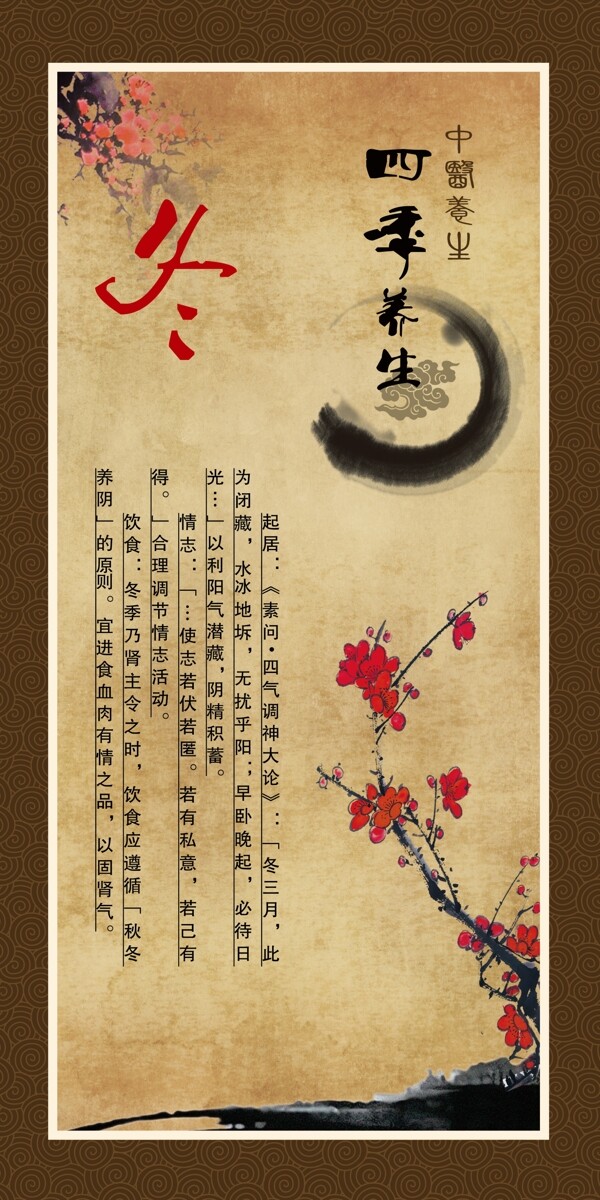 中醫養生
四季养生
冬
起居：《素问•四气调神大论》：「冬三月，此
为闭藏，水冰地坼，无扰乎阳；早卧晚起，必待日
光…」以利阳气潜藏，阴精积蓄。
情志：「…使志若伏若匿。若有私意，若己有
得。」合理调节情志活动。
饮食：冬季乃肾主令之时，饮食应遵循「秋冬
养阴」的原则。宜进食血肉有情之品，以固肾气。